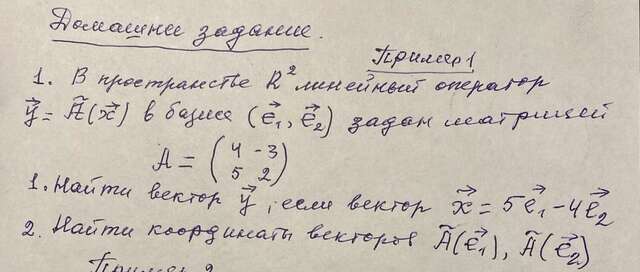 Домашнее задание.
Пример 1
1. В пространстве R² линейный оператор
y⃗ = Ã(x⃗) в базисе (e⃗₁, e⃗₂) задан матрицей
A = (4 -3
5 2)
1. Найти вектор y⃗, если вектор x⃗ = 5e⃗₁ - 4e⃗₂
2. Найти координаты векторов Ã(e⃗₁), Ã(e⃗₂)
Пример 2